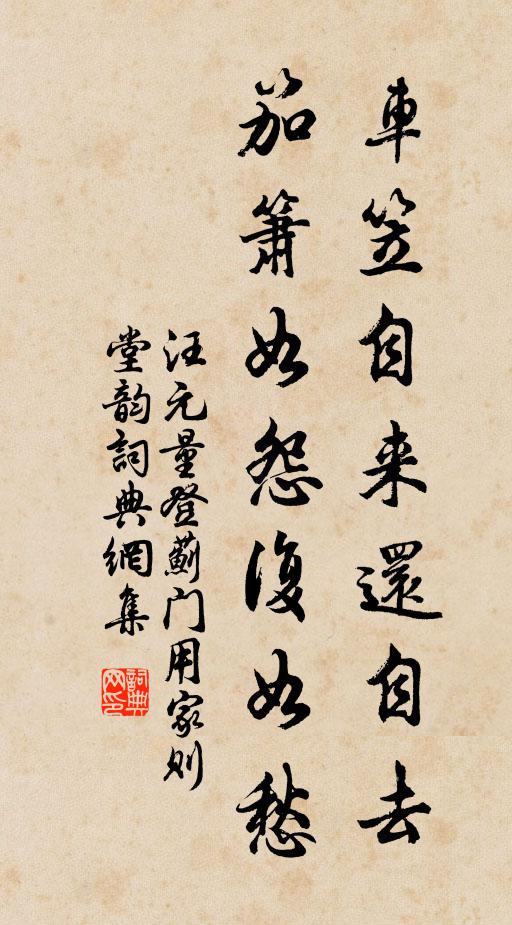 車笠自来還自去
笳簫如怨復如愁
汪元量登薊门用家则
堂韵詞典網集
詞典
网印